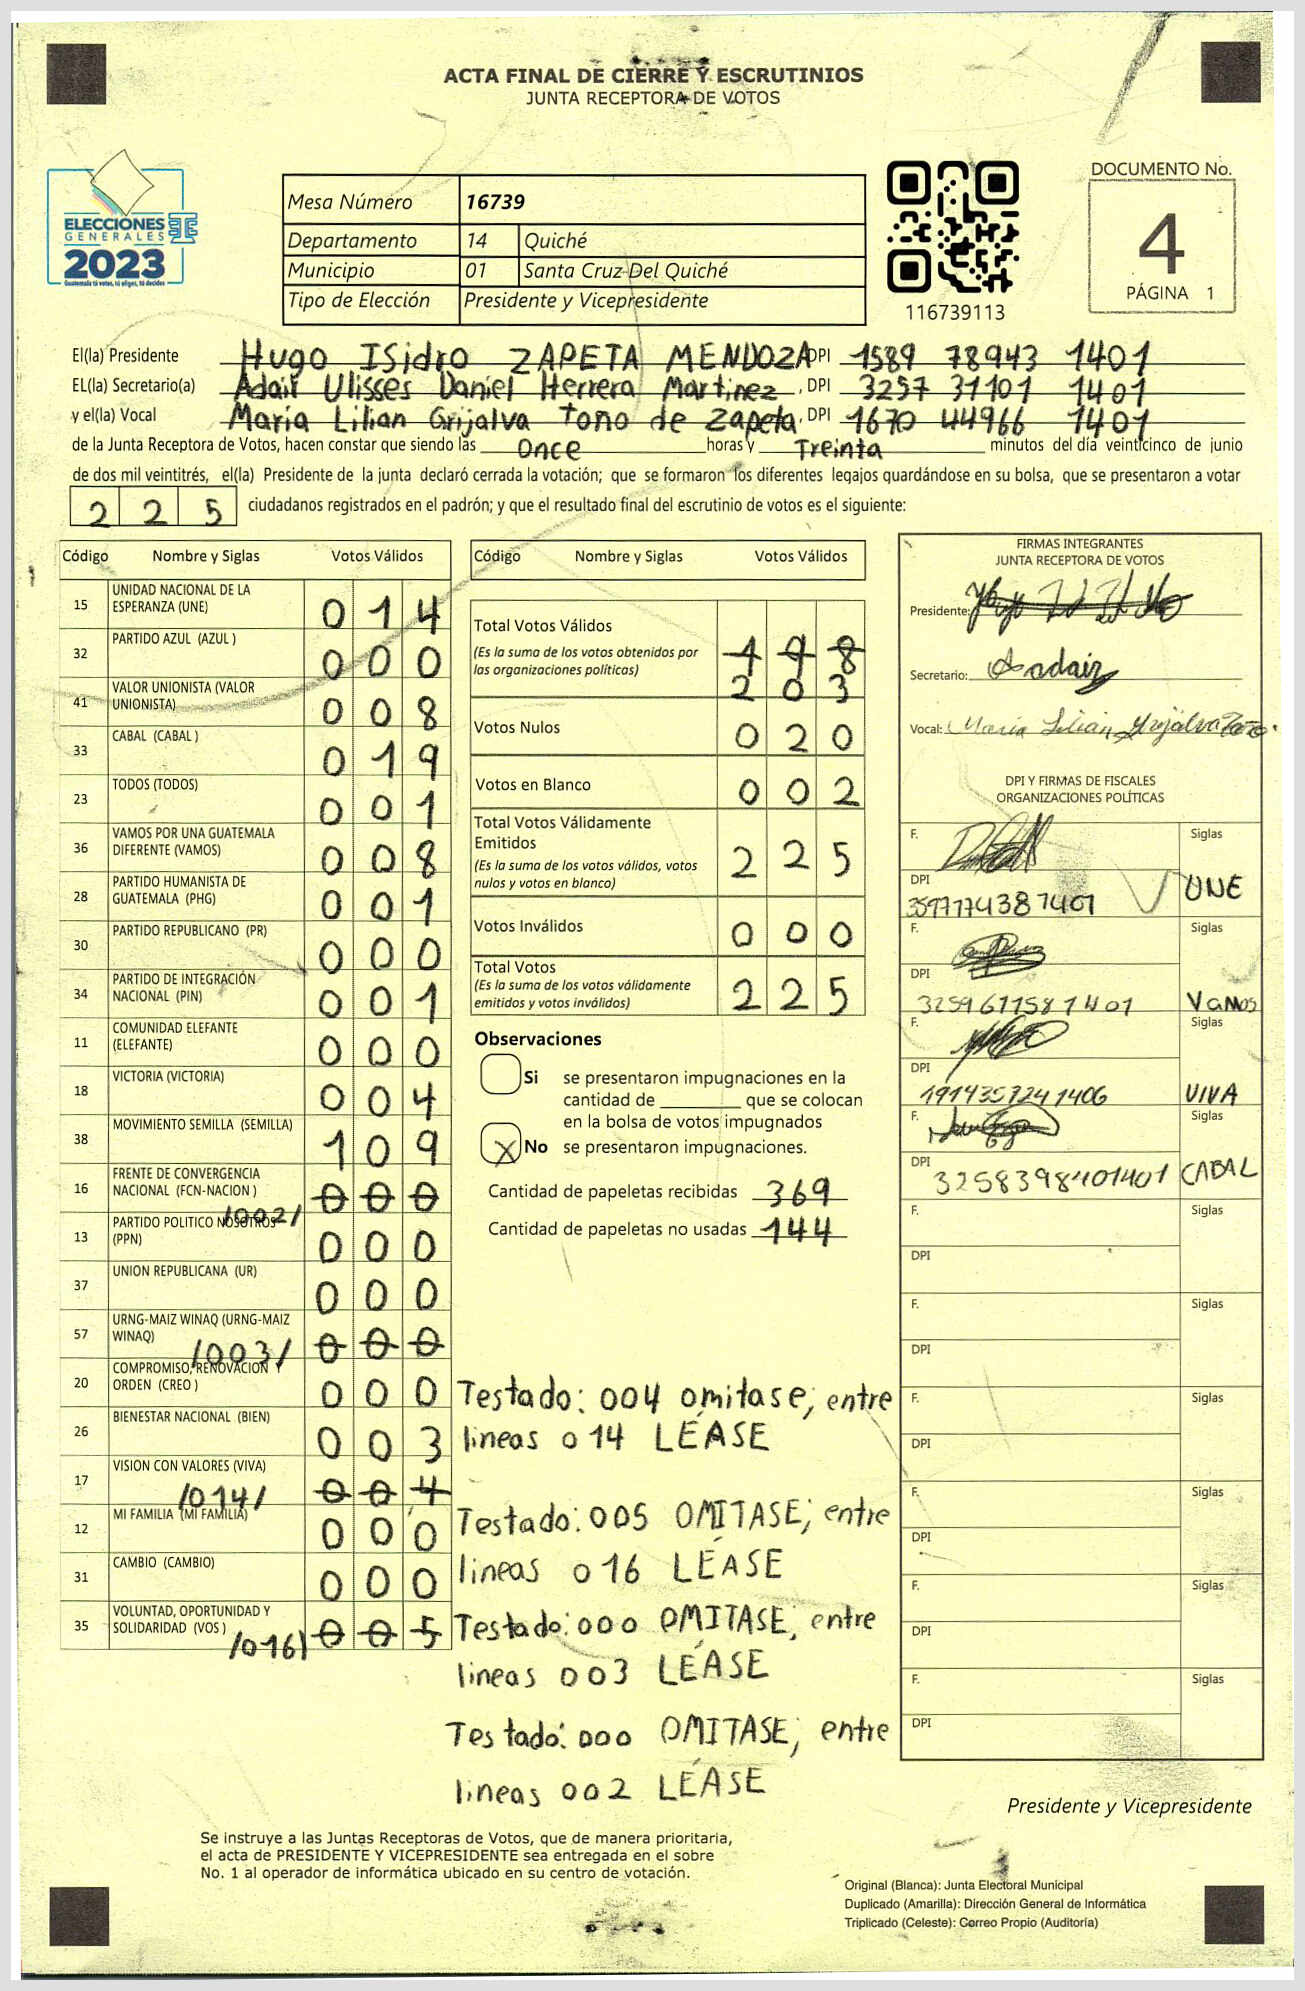 ACTA FINAL DE CIERRE Y ESCRUTINIOS
JUNTA RECEPTORA DE VOTOS
ELECCIONES
GENERALES
2023
Guatemala tú votas, tú eliges, tú decides
Mesa Número 16739
Departamento 14 Quiché
Municipio 01 Santa Cruz Del Quiché
Tipo de Elección Presidente y Vicepresidente
116739113
DOCUMENTO No.
4
PÁGINA 1
El(la) Presidente Hugo ISidro ZAPETA MENDOZA DPI 1589 78943 1401
EL(la) Secretario(a) Adair Ulisses Daniel Herrera Martinez, DPI 3257 31101 1401
y el(la) Vocal María Lilian Grijalva toño de Zapeta, DPI 1670 44966 1401
de la Junta Receptora de Votos, hacen constar que siendo las Once horas y Treinta minutos del día veinticinco de junio
de dos mil veintitrés, el(la) Presidente de la junta declaró cerrada la votación; que se formaron los diferentes legajos guardándose en su bolsa, que se presentaron a votar
2 2 5 ciudadanos registrados en el padrón; y que el resultado final del escrutinio de votos es el siguiente:
Código Nombre y Siglas Votos Válidos
15 UNIDAD NACIONAL DE LA
ESPERANZA (UNE) 0 1 4
32 PARTIDO AZUL (AZUL ) 0 0 0
41 VALOR UNIONISTA (VALOR
UNIONISTA) 0 0 8
33 CABAL (CABAL ) 0 1 9
23 TODOS (TODOS) 0 0 1
36 VAMOS POR UNA GUATEMALA
DIFERENTE (VAMOS) 0 0 8
28 PARTIDO HUMANISTA DE
GUATEMALA (PHG) 0 0 1
30 PARTIDO REPUBLICANO (PR) 0 0 0
34 PARTIDO DE INTEGRACIÓN
NACIONAL (PIN) 0 0 1
11 COMUNIDAD ELEFANTE
(ELEFANTE) 0 0 0
18 VICTORIA (VICTORIA) 0 0 4
38 MOVIMIENTO SEMILLA (SEMILLA) 1 0 9
16 FRENTE DE CONVERGENCIA
NACIONAL (FCN-NACION ) 0 0 0
/002/
13 PARTIDO POLITICO NOSOTROS
(PPN) 0 0 0
37 UNION REPUBLICANA (UR) 0 0 0
57 URNG-MAIZ WINAQ (URNG-MAIZ
WINAQ) /003/ 0 0 0
20 COMPROMISO, RENOVACION Y
ORDEN (CREO ) 0 0 0
26 BIENESTAR NACIONAL (BIEN) 0 0 3
17 VISION CON VALORES (VIVA)
/014/ 0 0 4
12 MI FAMILIA (MI FAMILIA) 0 0 0
31 CAMBIO (CAMBIO) 0 0 0
35 VOLUNTAD, OPORTUNIDAD Y
SOLIDARIDAD (VOS ) /016/ 0 0 5
Código Nombre y Siglas Votos Válidos
Total Votos Válidos
(Es la suma de los votos obtenidos por
las organizaciones políticas) 1 9 8
2 0 3
Votos Nulos 0 2 0
Votos en Blanco 0 0 2
Total Votos Válidamente
Emitidos
(Es la suma de los votos válidos, votos
nulos y votos en blanco) 2 2 5
Votos Inválidos 0 0 0
Total Votos
(Es la suma de los votos válidamente
emitidos y votos inválidos) 2 2 5
Observaciones
Si se presentaron impugnaciones en la
cantidad de ________ que se colocan
en la bolsa de votos impugnados
X No se presentaron impugnaciones.
Cantidad de papeletas recibidas 369
Cantidad de papeletas no usadas 144
Testado: 004 omitase, entre
lineas 014 LÉASE
Testado: 005 OMITASE; entre
lineas 016 LÉASE
Testado: 000 OMITASE, entre
lineas 003 LÉASE
Testado: 000 OMITASE, entre
lineas 002 LÉASE
FIRMAS INTEGRANTES
JUNTA RECEPTORA DE VOTOS
Presidente:
Secretario: Adair
Vocal: María Lilian Grijalva
DPI Y FIRMAS DE FISCALES
ORGANIZACIONES POLÍTICAS
F. Siglas
DPI UNE
F. Siglas
DPI
3259611581401 VAMOS
F. Siglas
DPI
1914357241406 VIVA
F. Siglas
DPI
3258398401401 CABAL
F. Siglas
DPI
F. Siglas
DPI
F. Siglas
DPI
F. Siglas
DPI
F. Siglas
DPI
F. Siglas
DPI
Presidente y Vicepresidente
Se instruye a las Juntas Receptoras de Votos, que de manera prioritaria,
el acta de PRESIDENTE Y VICEPRESIDENTE sea entregada en el sobre
No. 1 al operador de informática ubicado en su centro de votación.
Original (Blanca): Junta Electoral Municipal
Duplicado (Amarilla): Dirección General de Informática
Triplicado (Celeste): Correo Propio (Auditoría)